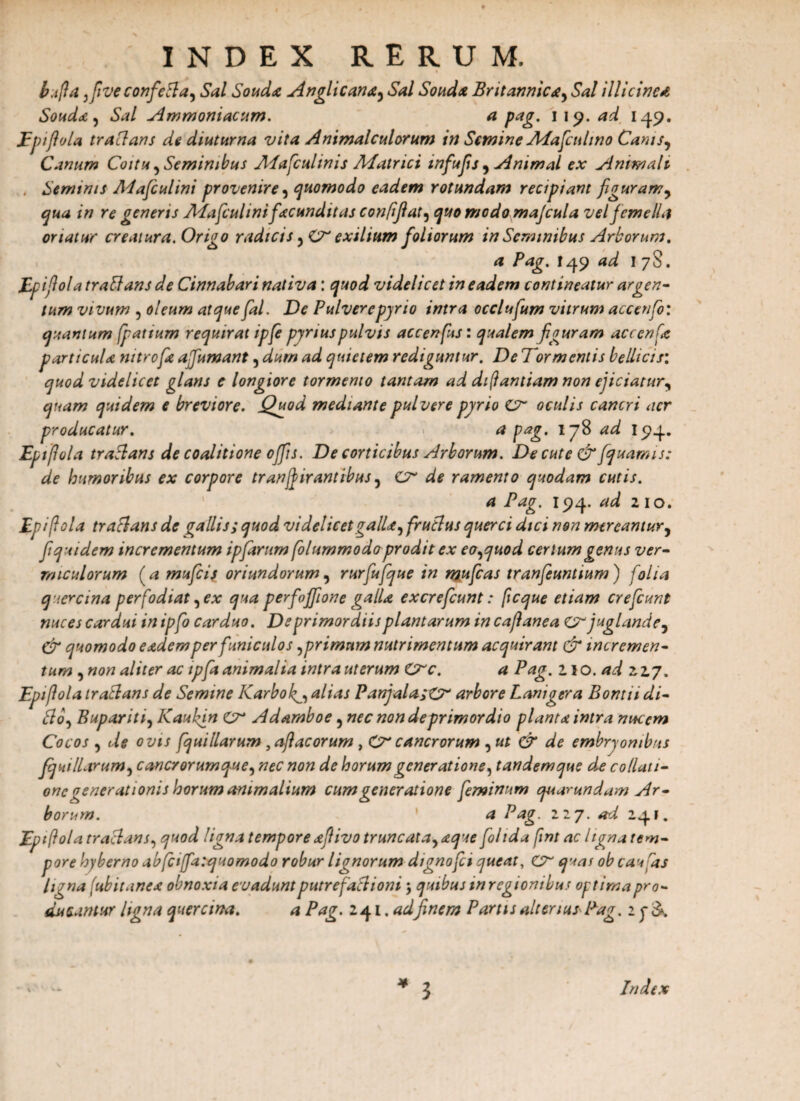 INDEX RERUM.
basta, sive confecta, Sal Soudæ Anglicanæ, Sal Soudæ Britannicæ, Sal illicineæ
Soudæ, Sal Ammoniacum. a pag. 119. ad 149.
Epistola tractans de diuturna vita Animalculorum in Semine Masculino Canis,
Canum Coitu, Seminibus Masculinis Matrici infusis, Animal ex Animali
Seminis Masculini provenire, quomodo eadem rotundam recipiant figuram,
qua in re generis Masculini fæcunditas consistat, quo modo mascula vel femella
oriatur creatura. Origo radicis, & exilium foliorum in Seminibus Arborum.
a Pag. 149 ad 178.
Epistola tractans de Cinnabari nativa: quod videlicet in eadem contineatur argen-
tum vivum, oleum atque sal. De Pulvere pyrio intra occlusum vitrum accenso:
quantum spatium requirat ipse pyrius pulvis accensus: qualem figuram accensæ
particulæ nitrosæ assumant, dum ad quietem rediguntur. De Tormentis bellicis:
quod videlicet glans e longiore tormento tantam ad distantiam non ejiciatur,
quam quidem e breviore. Quod mediante pulvere pyrio & oculis cancri aer
producatur. a pag. 178 ad 194.
Epistola tractans de coalitione ossis. De corticibus Arborum. De cute & squamis:
de humoribus ex corpore transpirantibus, & de ramento quodam cutis.
a Pag. 194. ad 210.
Epistola tractans de gallis; quod videlicet gallæ, fructus querci dici non mereantur,
siquidem incrementum ipsarum solummodo prodit ex eo, quod certum genus ver-
miculorum (a muscis oriundorum, rursusque in muscas transeuntium) folia
quercina perfodiat, ex qua perfossione gallæ excrescunt: sicque etiam crescunt
nuces cardui in ipso carduo. De primordiis plantarum in castanea & juglande,
& quomodo eædem per funiculos, primum nutrimentum acquirant & incremen-
tum, non aliter ac ipsa animalia intra uterum &c. a Pag. 210. ad 227.
Epistola tractans de Semine Karbok, alias Panjala; & arbore Lanigera Bontii di-
cto, Bupariti, Kaukin & Adamboe, nec non de primordio plantæ intra nucem
Cocos, de ovis squillarum, astacorum, & cancrorum, ut & de embryonibus
squillarum, cancrorumque, nec non de horum generatione, tandemque de collati-
one generationis horum animalium cum generatione seminum quarundam Ar-
borum. a Pag. 227. ad 241.
Epistola tractans, quod ligna tempore æstivo truncata, æque solida sint ac ligna tem-
pore hyberno abscissa: quomodo robur lignorum dignosci queat, & quas ob causas
ligna subitanea obnoxia evadunt putrefactioni; quibus in regionibus optima pro-
ducantur ligna quercina. a Pag. 241. ad finem Partis alterius Pag. 258.
* 3 Index